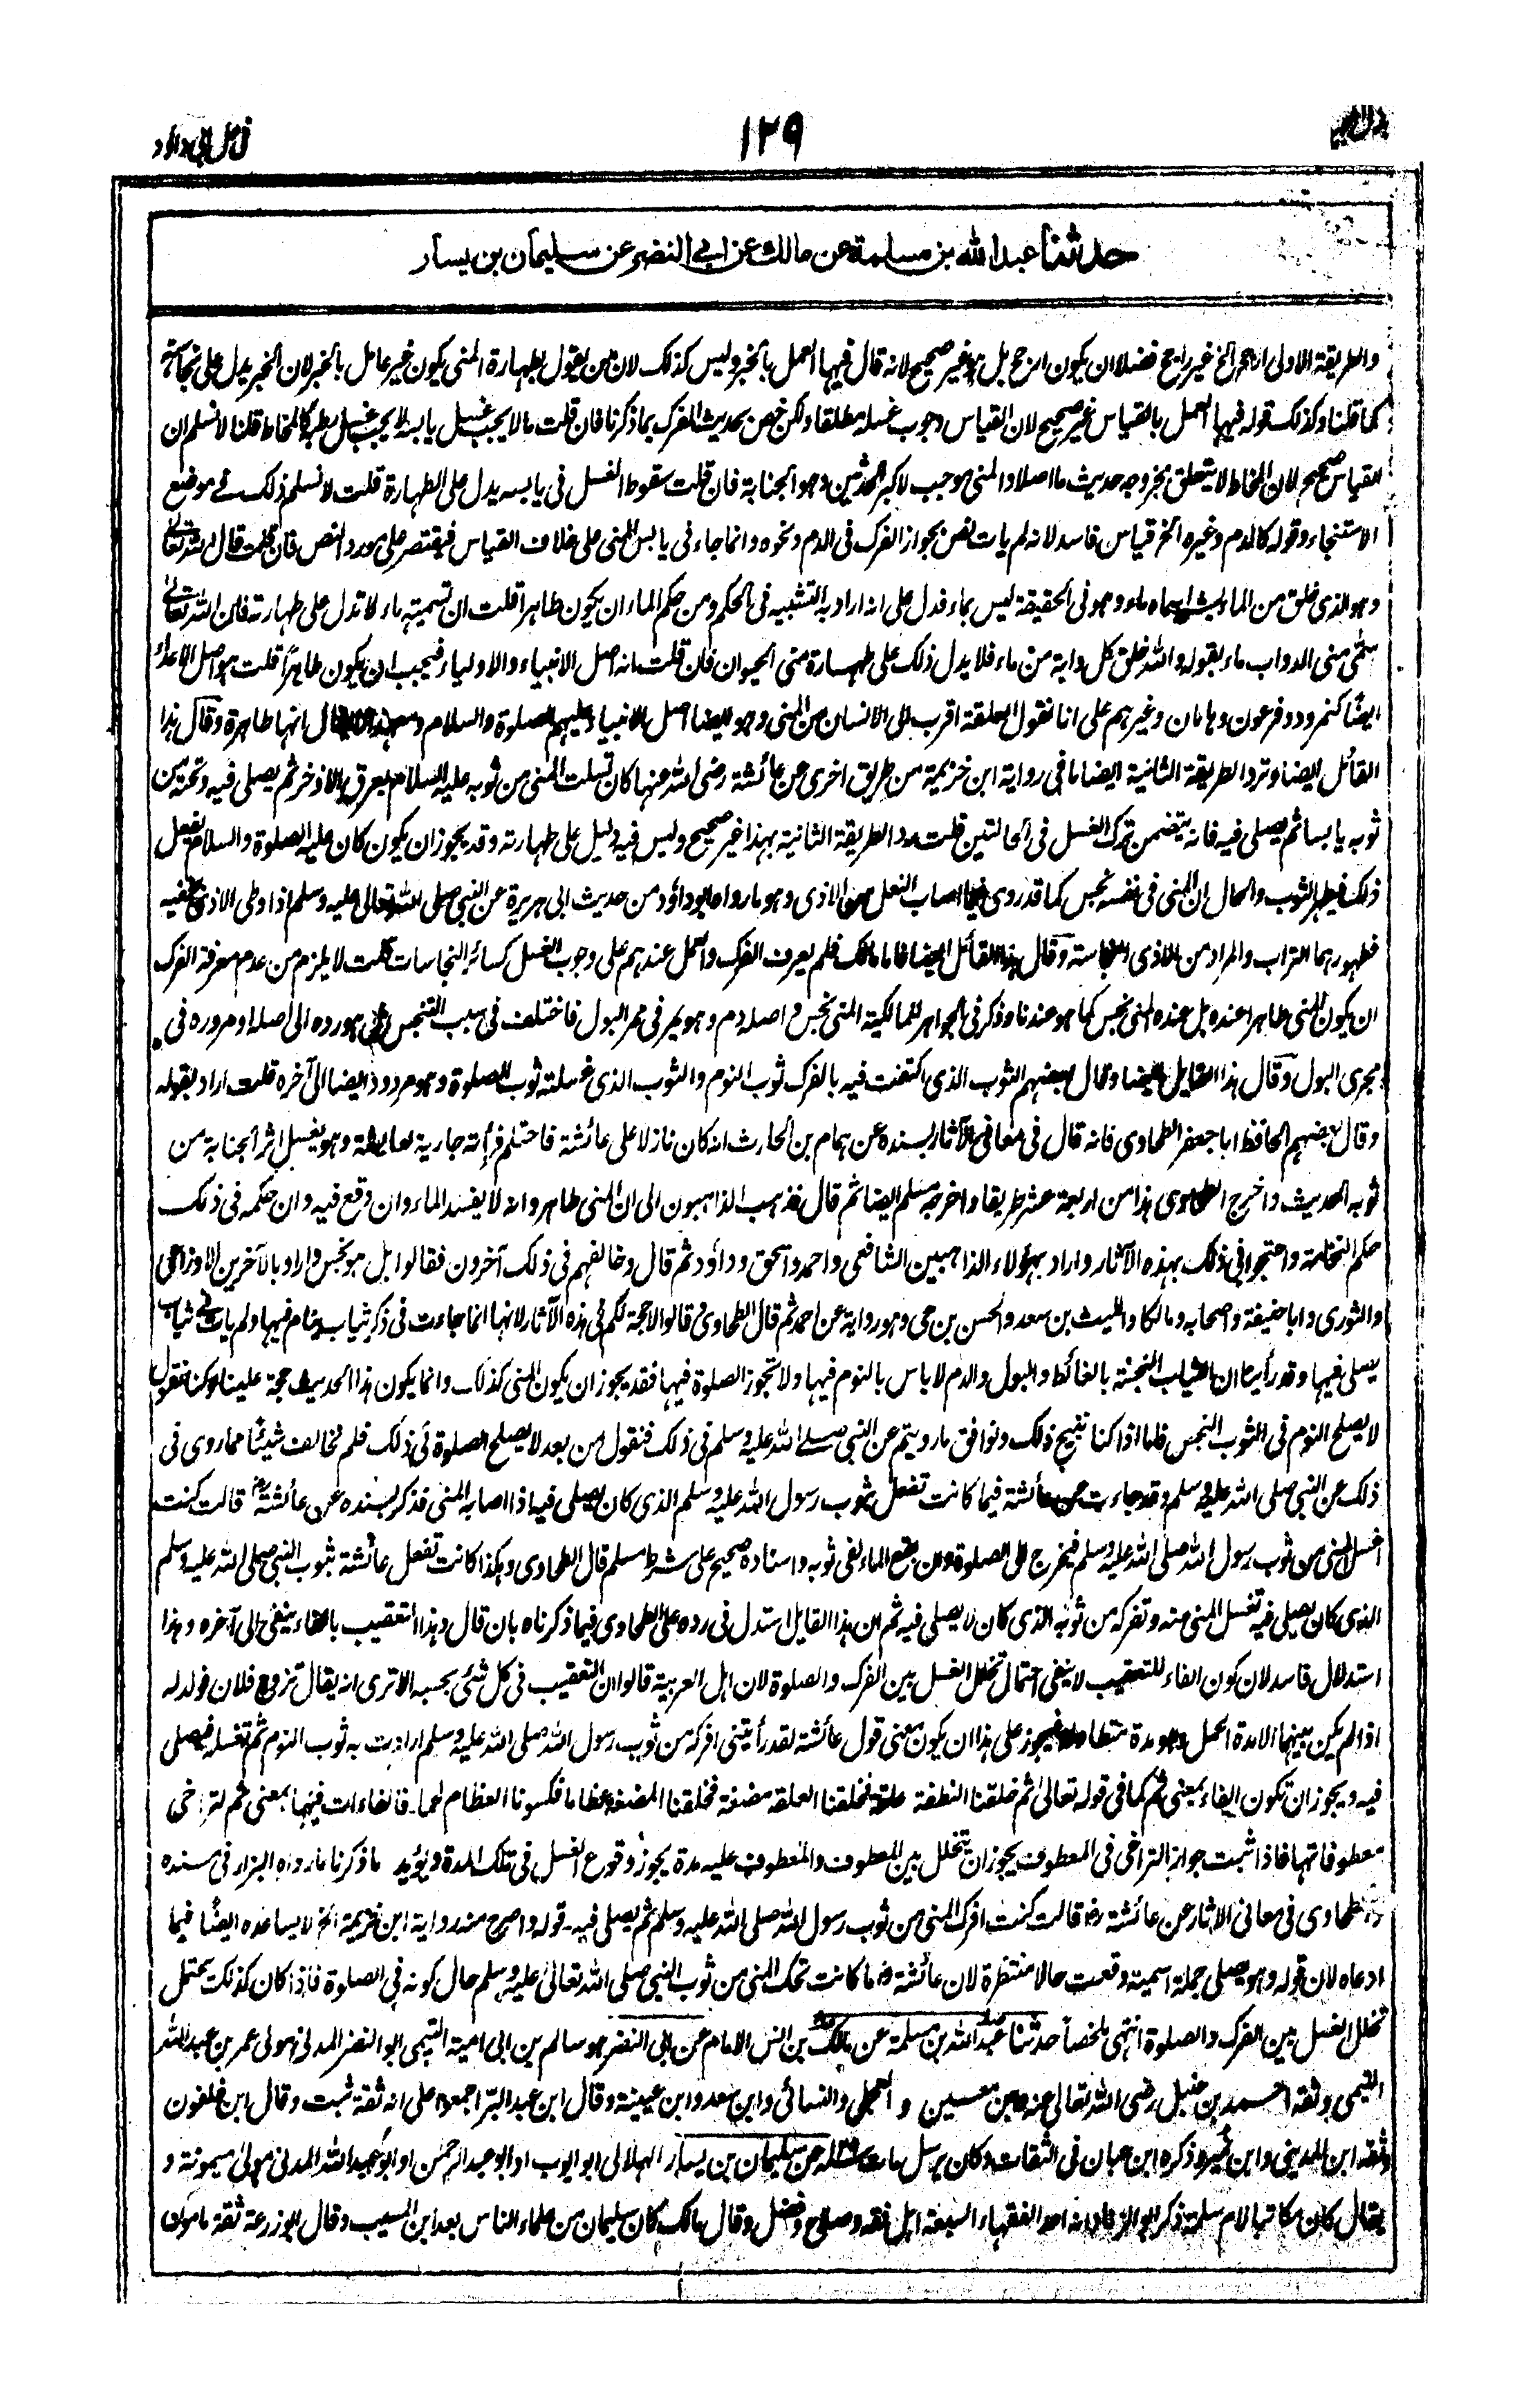 في حل ابي داود
١٢٩
حدثنا عبد الله بن مسلمة عن مالك عن ابي النضر عن سليمان بن يسار
والطريقة الاولى ارجح الخ غير راجح فضلا ان يكون ارجح بل هو غير صحيح لانه قال فيها العمل بالخبر وليس كذلك لان من يقول بطهارة المنى يكون غير عامل بالخبر لان الخبر يدل على نجاسته
كما قلنا وكذلك قوله فيها العمل بالقياس غير صحيح لان القياس وجوب غسله مطلقا ولكن خص بحديث الفرك بما ذكرنا فان قلت ما لا يجب غسل يابسه لا يجب غسل رطبه كالمخاط قلنا لا نسلم ان
القياس صحيح لان المخاط لا يتعلق بخروجه حديث ما اصلا والمنى موجب لاكبر الحدثين وهو الجنابة فان قلت سقوط الغسل فى يابسه يدل على الطهارة قلت لا نسلم ذلك فى موضع
الاستنجاء وقوله كالدم وغيره الخ قياس فاسد لانه لم يات نص بجواز الفرك فى الدم ونحوه وانما جاء فى يابس المنى على خلاف القياس فيقتصر على مورد النص فان قلت قال الله تعالى
وهو الذى خلق من الماء بشرا سماه ماء وهو فى الحقيقة ليس بماء فدل على انه اراد به التشبيه فى الحكم ومن حكم الماء ان يكون طاهرا قلت ان تسميته ماء لا تدل على طهارته فان الله تعالى
سمى منى الدواب ماء بقوله والله خلق كل دابة من ماء فلا يدل ذلك على طهارة منى الحيوان فان قلت انه اصل الانبياء والاولياء فيجب ان يكون طاهرا قلت هو اصل الاعداء
ايضا كنمرود وفرعون وهامان وغيرهم على انا نقول العلقة اقرب الى الانسان من المنى وهو ايضا اصل الانبياء عليهم الصلوة والسلام ومع هذا لا يقال انها طاهرة وقال هذا
القائل ايضا وترد الطريقة الثانية ايضا ما فى رواية ابن خزيمة من طريق اخرى عن عائشة رضى الله عنها كان تسلت المنى من ثوبه عليه السلام بعرق الاذخر ثم يصلى فيه وتحته من
ثوبه يابسا ثم يصلى فيه فانه يتضمن ترك الغسل فى الحالتين قلت رد الطريقة الثانية بهذا غير صحيح وليس فيه دليل على طهارته وقد يجوز ان يكون كان عليه الصلوة والسلام يفعل
ذلك فيطهر الثوب والحال ان المنى فى نفسه نجس كما قد روى فيما اصاب النعل من الاذى وهو ما رواه ابو داؤد من حديث ابى هريرة عن النبى صلى الله تعالى عليه وسلم اذا وطى الاذى بخفيه
فطهورهما التراب والمراد من الاذى النجاسة وقال هذا القائل ايضا فاما مالك فلم يعرف الفرك والعمل عندهم على وجوب الغسل كسائر النجاسات قلت لا يلزم من عدم معرفة الفرك
ان يكون المنى طاهرا عنده بل عنده المنى نجس كما هو عندنا وذكر فى الجواهر للمالكية المنى نجس واصله دم وهو يمر فى ممر البول فاختلف فى سبب التنجس هل هو رده الى اصله او مروره فى
مجرى البول وقال هذا القايل ايضا وقال بعضهم الثوب الذى اكتفت فيه بالفرك ثوب النوم والثوب الذى غسلته ثوب الصلوة وهو مردود ايضا الى آخره قلت اراد بقوله
وقال بعضهم الحافظ ابا جعفر الطحاوى فانه قال فى معانى الآثار بسنده عن همام بن الحارث انه كان نازلا على عائشة فاحتلم فرأته جارية لعائشة وهو يغسل اثر الجنابة من
ثوبه الحديث واخرج الطحاوى هذا من اربعة عشر طريقا واخرجه مسلم ايضا ثم قال فذهب الذاهبون الى ان المنى طاهر وانه لا يفسد الماء وان وقع فيه وان حكمه فى ذلك
حكم النخامة واحتجوا فى ذلك بهذه الآثار واراد بهؤلاء الذاهبين الشافعى واحمد واسحق وداؤد ثم قال وخالفهم فى ذلك آخرون فقالوا بل هو نجس واراد بالآخرين الاوزاعى
والثورى وابا حنيفة واصحابه ومالكا والليث بن سعد والحسن بن حى وهو رواية عن احمد ثم قال الطحاوى قالوا لا حجة لكم فى هذه الآثار لانها انما جاءت فى ذكر ثياب ينام فيها ولم يات فى ثياب
يصلى فيها وقد رأينا ان الثياب النجسة بالغائط والبول والدم لا باس بالنوم فيها ولا تجوز الصلوة فيها فقد يجوز ان يكون المنى كذلك وانما يكون هذا الحديث حجة علينا لو كنا نقول
لا يصلح النوم فى الثوب النجس فاما اذا كنا نبيح ذلك ونوافق ما رويتم عن النبى صلى الله عليه وسلم فى ذلك فنقول من بعد لا يصلح الصلوة فى ذلك فلم نخالف شيئا مما روى فى
ذلك عن النبى صلى الله عليه وسلم وقد جاءت عن عائشة فيما كانت تفعل بثوب رسول الله عليه وسلم الذى كان يصلى فيه اذا اصابه المنى فذكر بسنده عن عائشة رض قالت كنت
اغسل المنى من ثوب رسول الله صلى الله عليه وسلم فيخرج الى الصلوة وان بقع الماء لفى ثوبه واسناده صحيح على شرط مسلم قال الطحاوى وهكذا كانت تفعل عائشة بثوب النبى صلى الله عليه وسلم
الذى كان يصلى فيه تغسل المنى منه وتفركه من ثوبه الذى كان لا يصلى فيه ثم ان هذا القايل استدل فى رده على الطحاوى فيما ذكرناه بان قال وهذا التعقيب بالفاء ينفى الى آخره وهذا
استدلال فاسد لان كون الفاء للتعقيب لا ينفى احتمال تخلل الغسل بين الفرك والصلوة لان اهل العربية قالوا ان التعقيب فى كل شئ بحسبه الا ترى انه يقال تزوج فلان فولد له
اذا لم يكن بينهما الا مدة الحمل وهو مدة متطاولة فيجوز على هذا ان يكون معنى قول عائشة لقد رأيتنى افركه من ثوب رسول الله صلى الله عليه وسلم ارادت به ثوب النوم ثم تغسله فيصلى
فيه ويجوز ان تكون الفاء بمعنى ثم كما فى قوله تعالى ثم خلقنا النطفة علقة فخلقنا العلقة مضغة فخلقنا المضغة عظاما فكسونا العظام لحما. فالفاءات فيها بمعنى ثم لتراخى
معطوفاتها فاذا ثبت جواز التراخى فى المعطوف يجوز ان يتخلل بين المعطوف والمعطوف عليه مدة يجوز وقوع الغسل فى تلك المدة ويؤيد ما ذكرنا ما رواه البزار فى مسنده
والطحاوى فى معانى الاثار عن عائشة رض قالت كنت افرك المنى من ثوب رسول الله صلى الله عليه وسلم ثم يصلى فيه. قوله واصرح منه رواية ابن خزيمة الخ لا يساعده ايضا فيما
ادعاه لان قوله وهو يصلى جملة اسمية وقعت حالا منتظرة لان عائشة رض ما كانت تحك المنى من ثوب النبى صلى الله تعالى عليه وسلم حال كونه فى الصلوة فاذا كان كذلك يحتمل
تخلل الغسل بين الفرك والصلوة انتهى ملخصا حدثنا عبد الله بن مسلمة عن مالك بن انس الامام عن ابى النضر هو سالم بن ابى امية التيمى ابو النضر المدنى مولى عمر بن عبد الله
التيمى وثقه احمد بن حنبل رضى الله تعالى عنه وابن معين و العجلى والنسائى وابن سعد وابن عيينة وقال ابن عبد البر اجمعوا على انه ثقة ثبت وقال ابن خلفون
وثقه ابن المدينى وابن نمير وذكره ابن حبان فى الثقات وكان يرسل مات عن سليمان بن يسار الهلالى ابو ايوب او ابو عبد الرحمن او ابو عبيد الله المدنى مولى ميمونة و
يقال كان مكاتبا لام سلمة ذكر ابو الزناد انه احد الفقهاء السبعة اهل فقه وصلاح وفضل وقال مالك كان سليمان من علماء الناس بعد ابن المسيب وقال ابو زرعة ثقة مامون